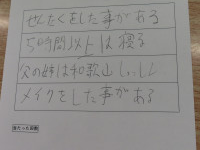 せんたくをした事がある
5時間以上は寝る
父の姉は和歌山
メイクをした事がある